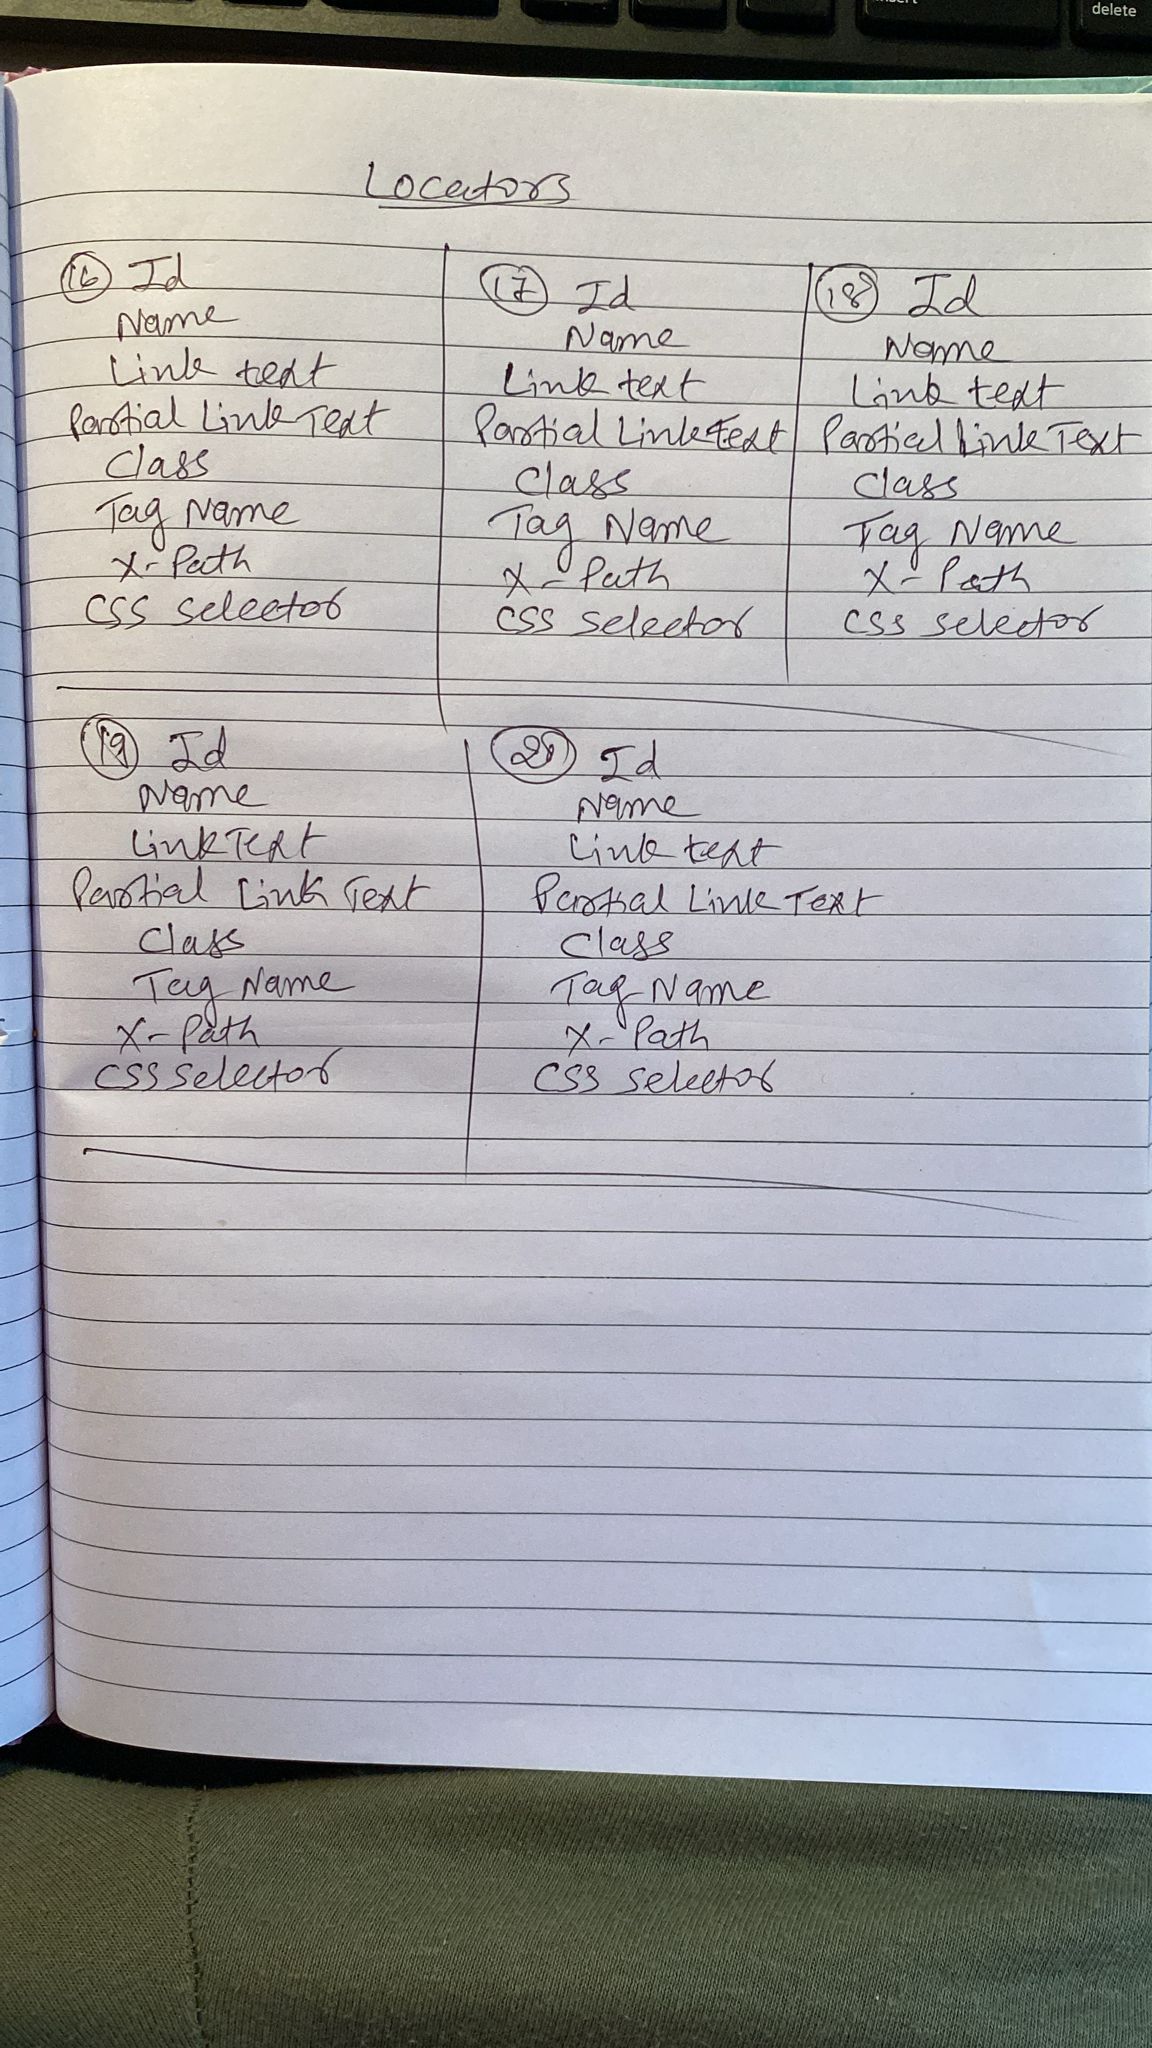 delete
Locators
16 Id
Name
Link text
Partial Link Text
Class
Tag Name
X-Path
CSS selector
17 Id
Name
Link text
Partial Link Text
Class
Tag Name
X-Path
CSS selector
18 Id
Name
Link text
Partial Link Text
Class
Tag Name
X-Path
CSS selector
19 Id
Name
Link Text
Partial Link Text
Class
Tag Name
X-Path
CSS selector
Id
Name
Link text
Partial Link Text
Class
Tag Name
X-Path
CSS selector